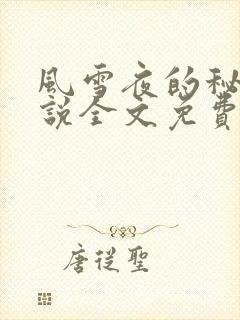 風雪夜的秘
說全文免費
唐從聖